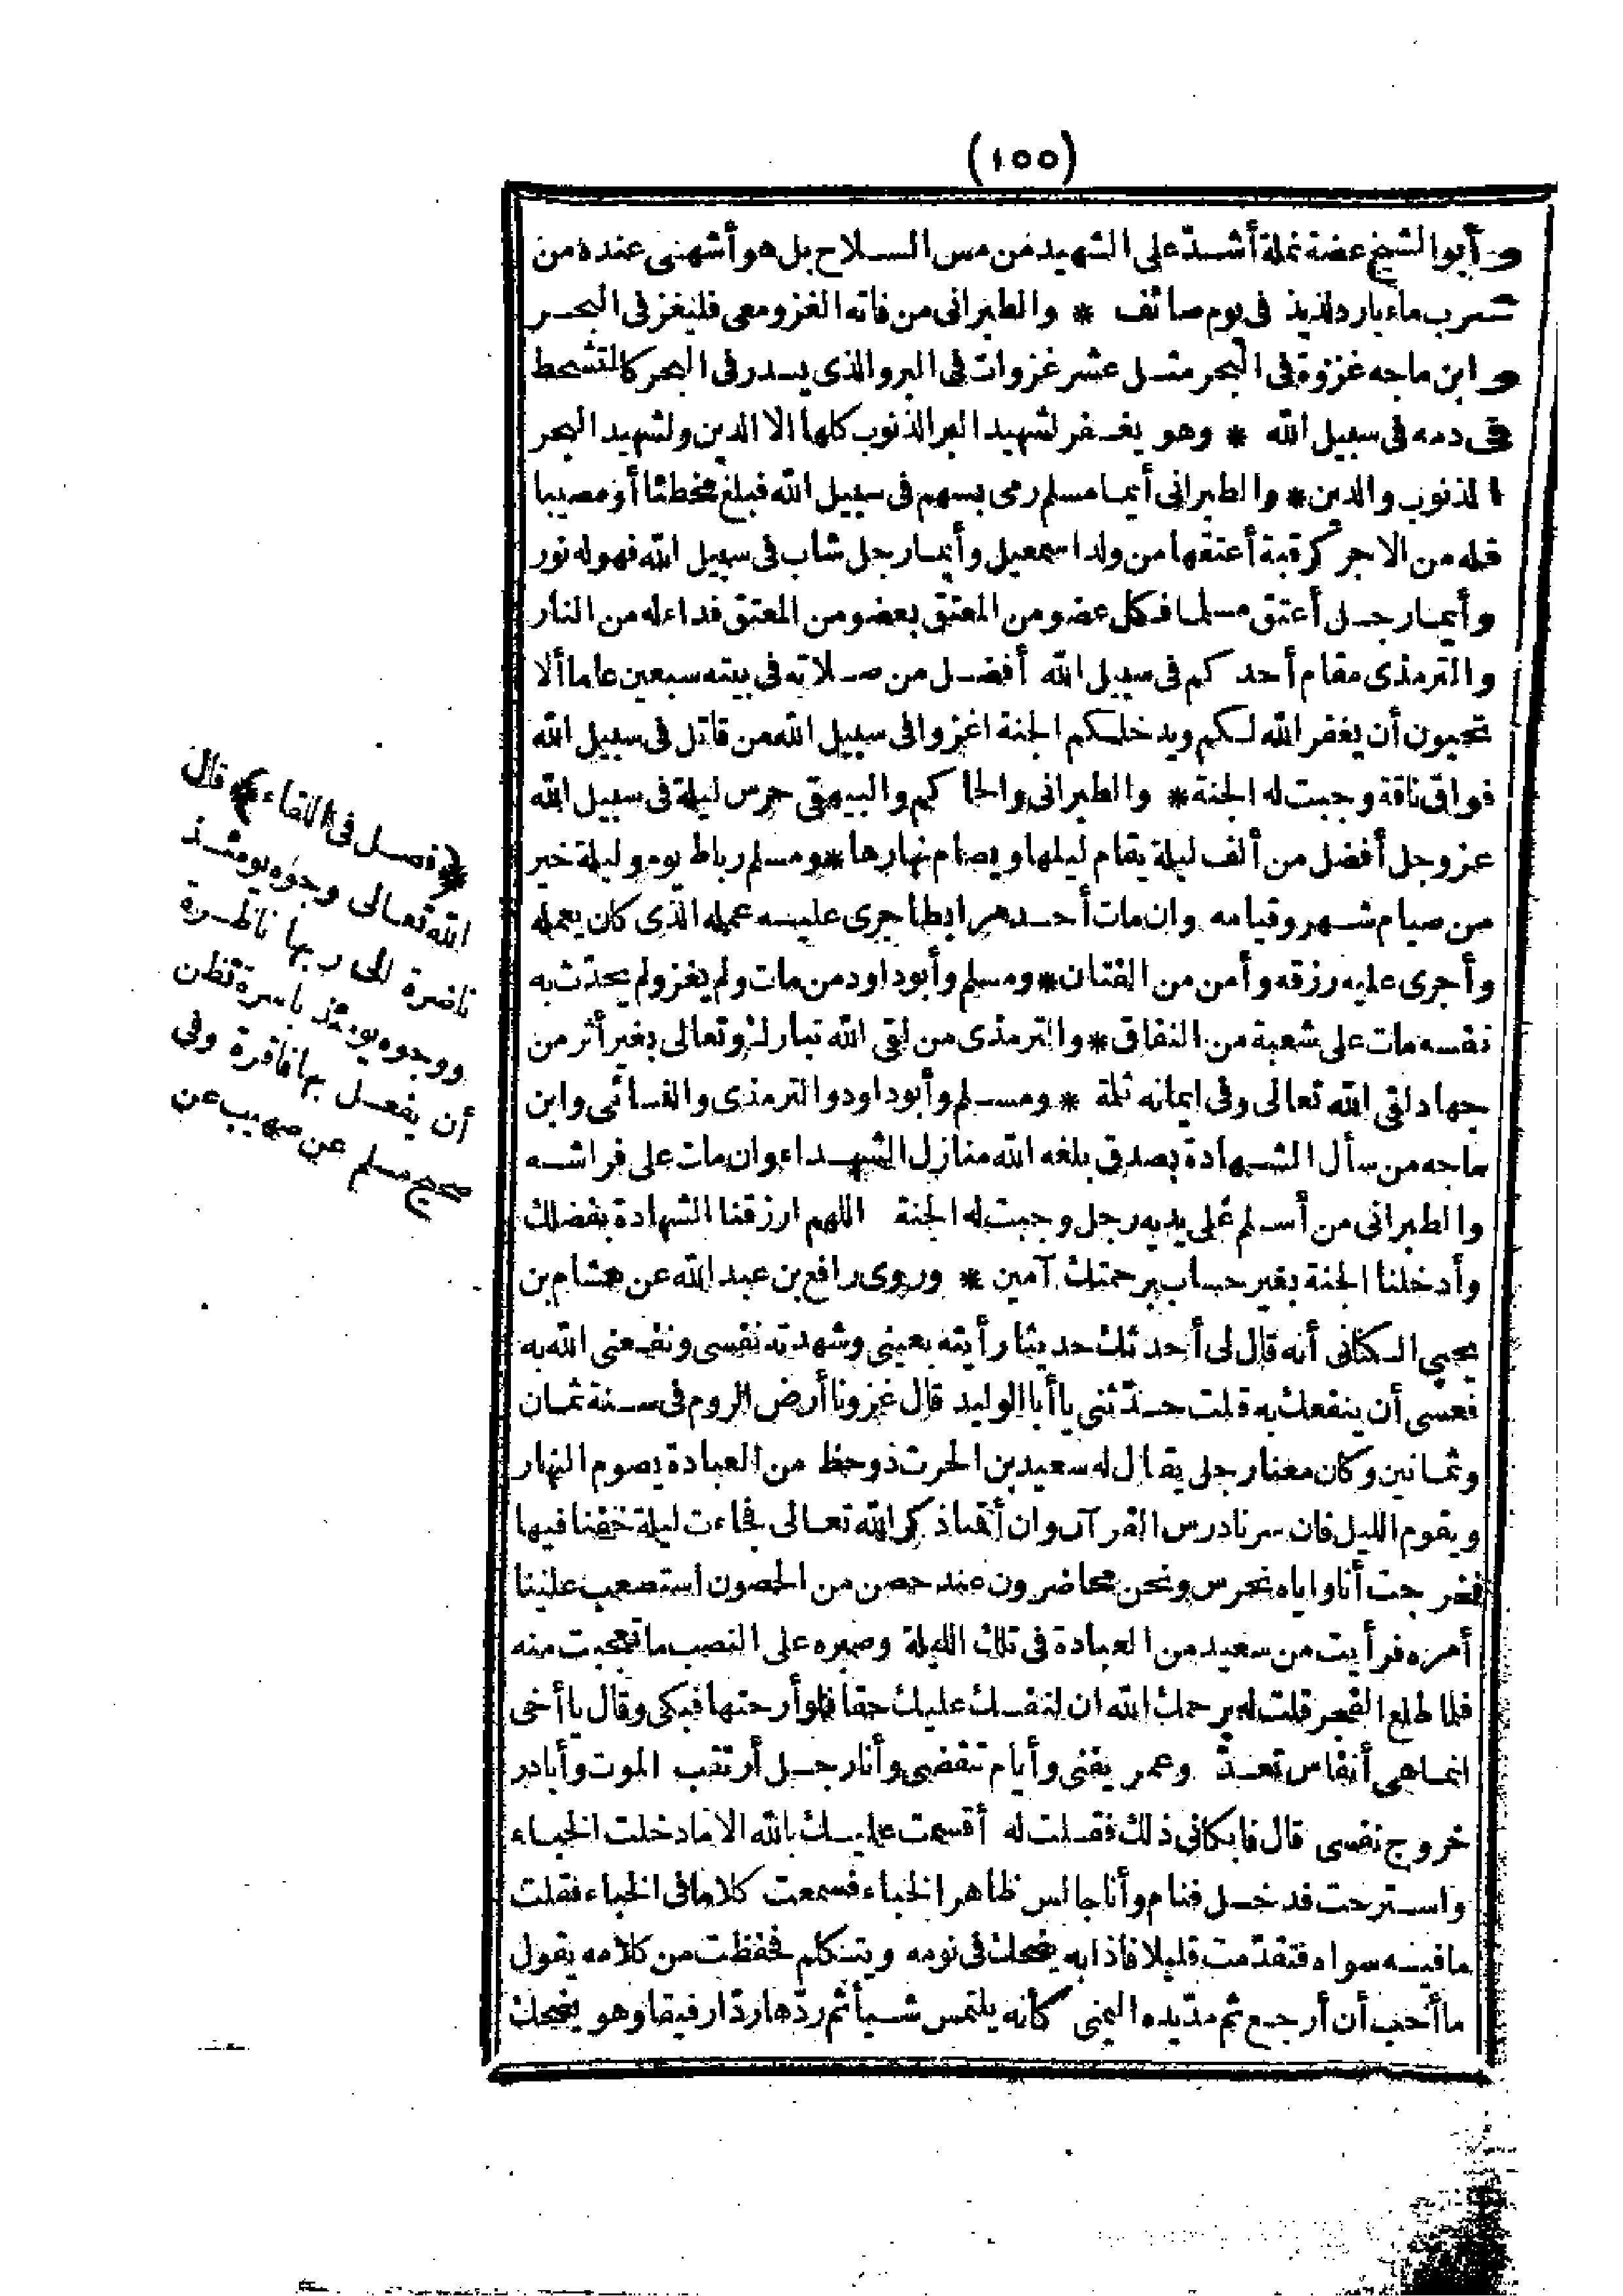 (١٥٥)
وأبو الشيخ عضة نملة أشد على الشهيد من مس السلاح بل هو أشهى عنده من
شرب ماء بارد لذيذ فى يوم صائف * والطبرانى من فاته الغزو معى فليغز فى البحر
وابن ماجه غزوة فى البحر مثل عشر غزوات فى البر والذى يسدر فى البحر كالمتشحط
فى دمه فى سبيل الله * وهو يغفر لشهيد البر الذنوب كلها الا الدين ولشهيد البحر
الذنوب والدين * والطبرانى أيما مسلم رمى بسهم فى سبيل الله فبلغ مخطئا أو مصيبا
فله من الاجر كرقبة أعتقها من ولد اسمعيل وأيما رجل شاب فى سبيل الله فهو له نور
وأيما رجل أعتق مسلما فكل عضو من المعتق بعضو من المعتق فداء له من النار
والترمذى مقام أحدكم فى سبيل الله أفضل من صلاته فى بيته سبعين عاما ألا
تحبون أن يغفر الله لكم ويدخلكم الجنة اغزوا فى سبيل الله من قاتل فى سبيل الله
فواق ناقة وجبت له الجنة * والطبرانى والحاكم والبيهقى حرس ليلة فى سبيل الله
عز وجل أفضل من ألف ليلة يقام ليلها ويصام نهارها * ومسلم رباط يوم وليلة خير
من صيام شهر وقيامه وان مات أحدهم رابطا جرى عليه عمله الذى كان يعمله
وأجرى عليه رزقه وأمن من الفتان * ومسلم وأبو داود من مات ولم يغز ولم يحدّث به
نفسه مات على شعبة من النفاق * والترمذى من لقى الله تبارك وتعالى بغير أثر من
جهاد لقى الله تعالى وفى ايمانه ثلمة * ومسلم وأبو داود والترمذى والنسائى وابن
ماجه من سأل الشهادة بصدق بلغه الله منازل الشهداء وان مات على فراشه
والطبرانى من أسلم على يديه رجل وجبت له الجنة اللهم ارزقنا الشهادة بفضلك
وأدخلنا الجنة بغير حساب برحمتك آمين * وروى رافع بن عبد الله عن هشام بن
يحيى الكنانى أنه قال لى أحدثك حديثا رأيته بعينى وشهدته نفسى ونفعنى الله به
فعسى أن ينفعك به قلت حدّثنى يا أبا الوليد قال غزونا أرض الروم فى سنة ثمان
وثمانين وكان معنا رجل يقال له سعيد بن الحرث ذو حظ من العبادة يصوم النهار
ويقوم الليل فان سرنا درس القرآن وان أقمنا ذكر الله تعالى فجاءت ليلة خفنا فيها
فخرجت أنا واياه نحرس ونحن محاصرون عند حصن من الحصون استصعب علينا
أمره فرأيت من سعيد من العبادة فى تلك الليلة وصبره على النصب ما تعجبت منه
فلما طلع الفجر قلت له يرحمك الله ان لنفسك عليك حقا فلو أرحتها فبكى وقال يا أخى
انما هى أنفاس تعدّ وعمر يفنى وأيام تنقضى وأنا رجل أرتقب الموت وأبادر
خروج نفسى قال فابكانى ذلك فقلت له أقسمت عليك بالله الا ما دخلت الخباء
واسترحت فدخل فنام وأنا جالس ظاهر الخباء فسمعت كلاما فى الخباء فقلت
ما فيه سواه فتقدّمت قليلا فاذا به يضحك فى نومه ويتكلم فحفظت من كلامه يقول
ما أحب أن أرجع ثم مدّ يده اليمنى كأنه يلتمس شيأ ثم ردّها ردّا رفيقا وهو يضحك
﴿فصل فى اللقاء﴾ قال
الله تعالى وجوه يومئذ
ناضرة الى ربها ناظرة
ووجوه يومئذ باسرة تظن
أن يفعل بها فاقرة وفى
صحيح مسلم عن صهيب عن